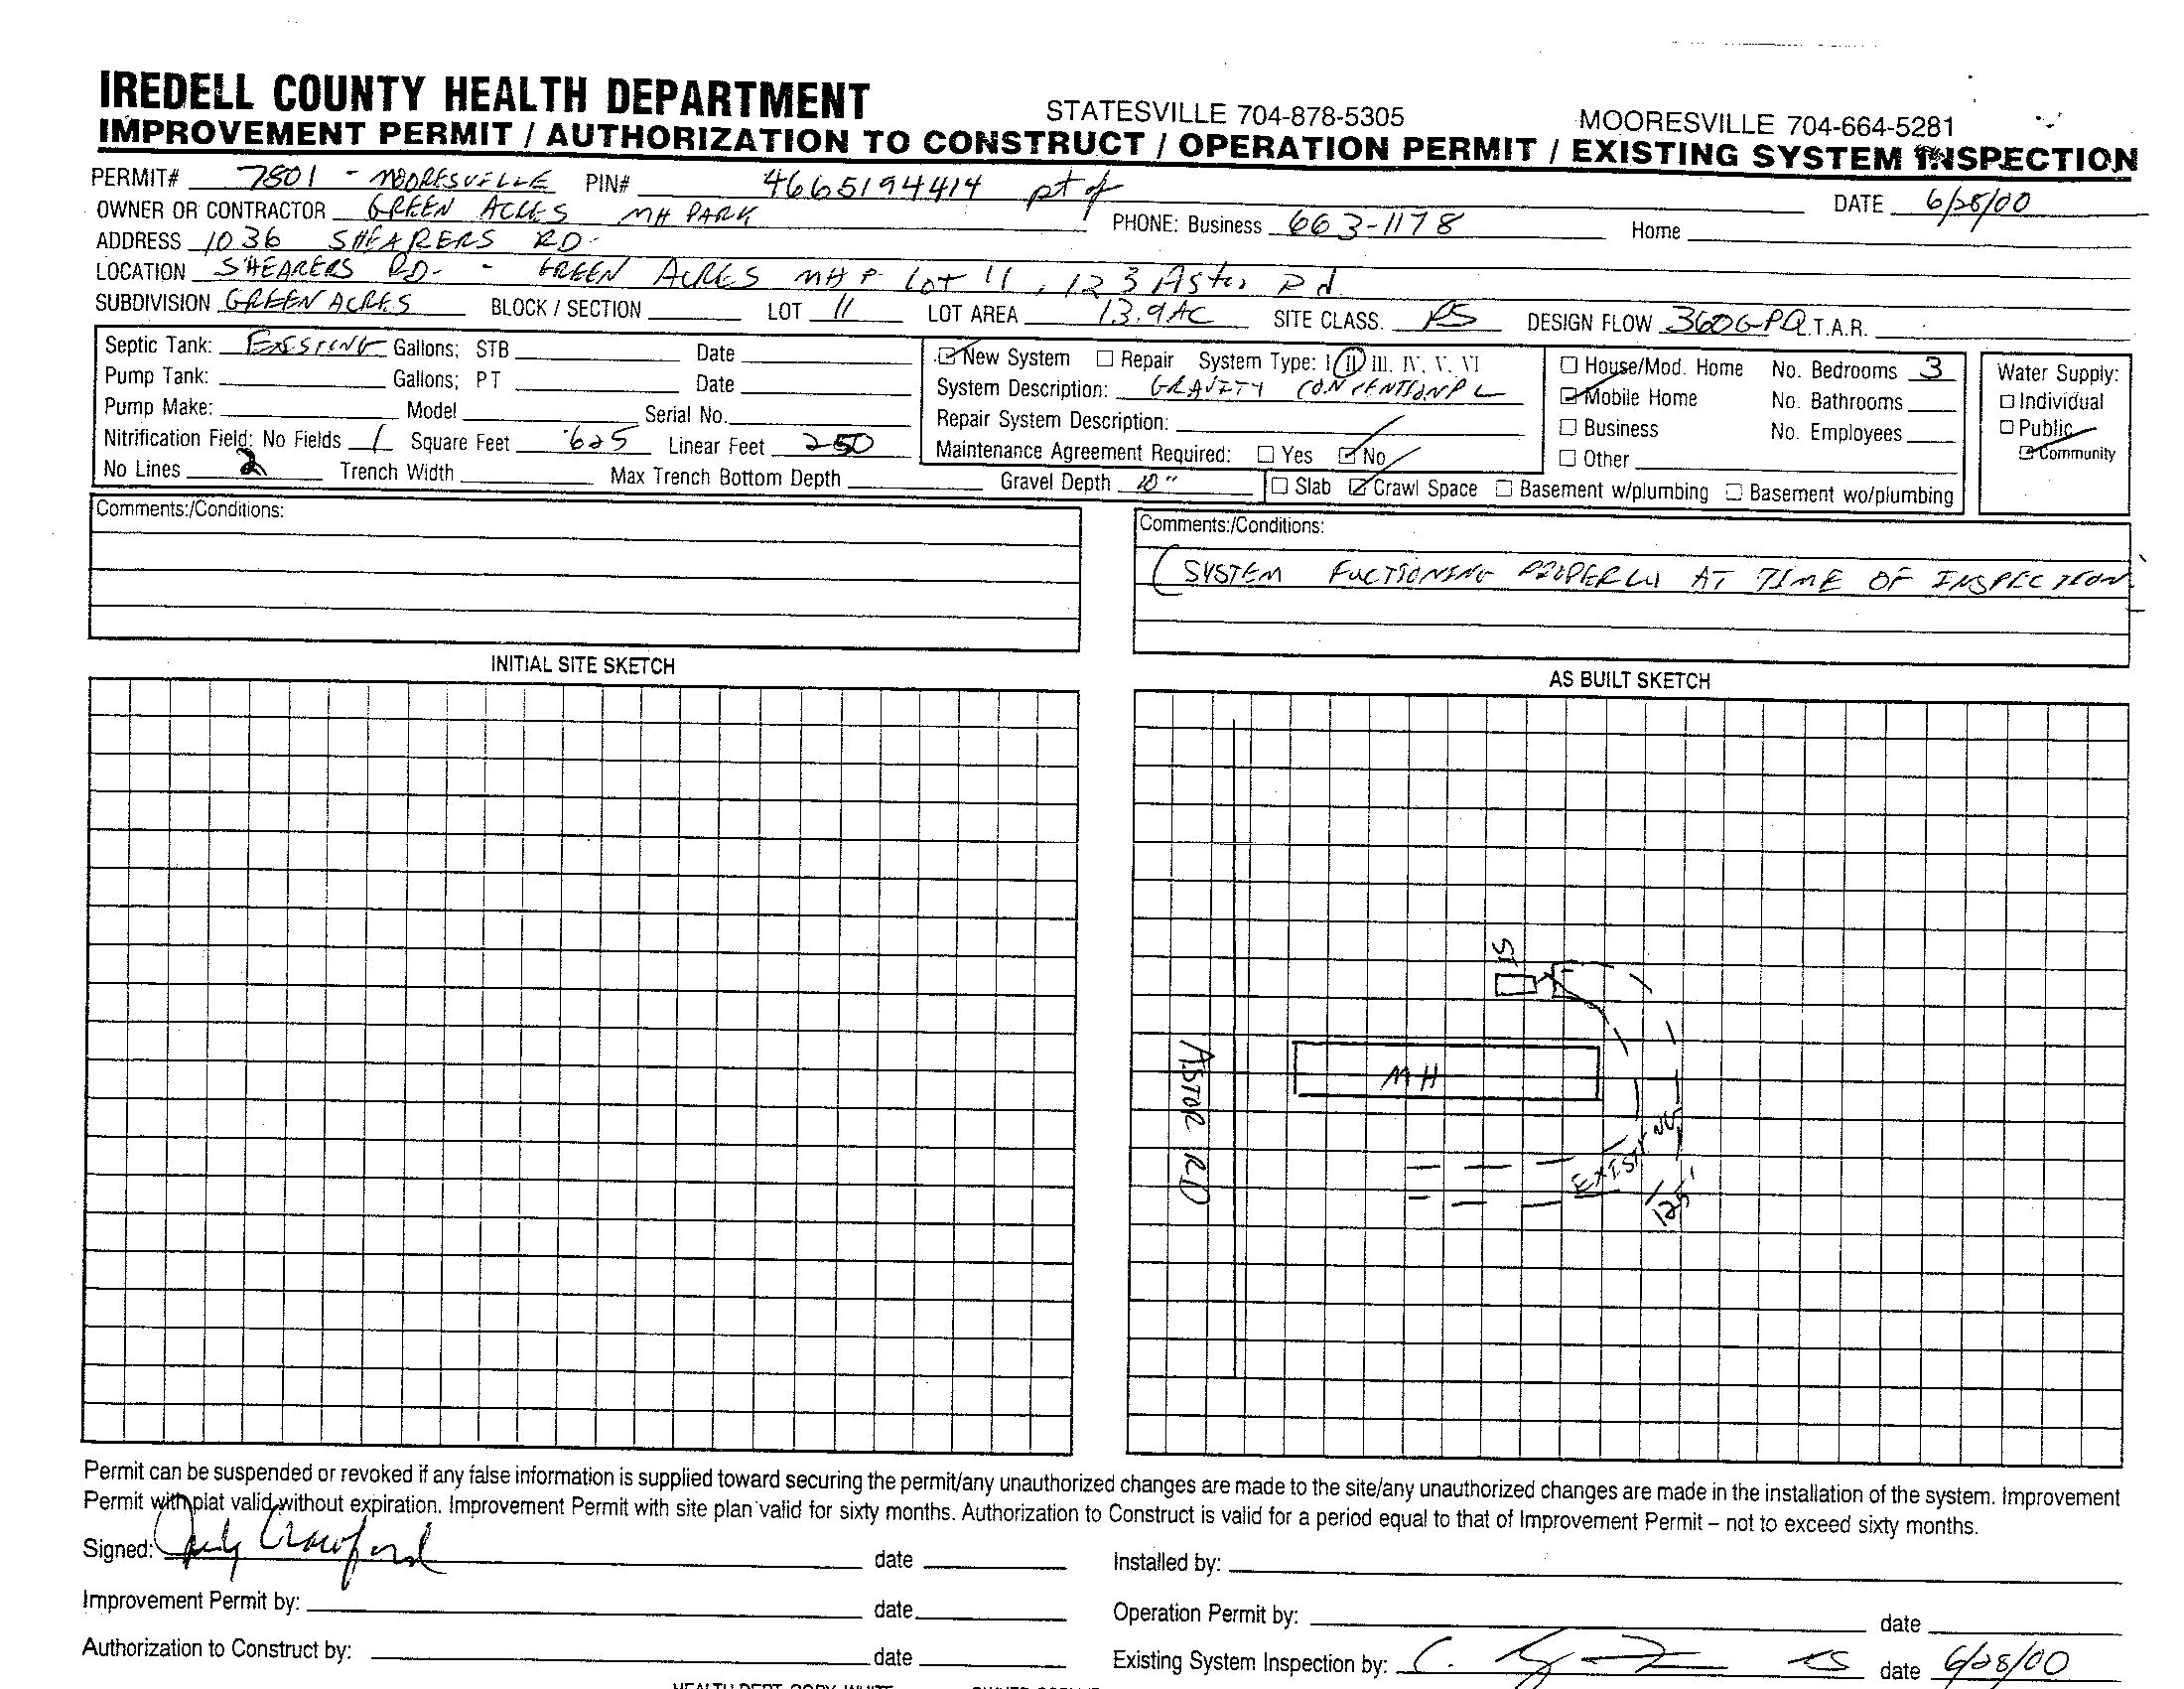 IREDELL COUNTY HEALTH DEPARTMENT STATESVILLE 704-878-5305 MOORESVILLE 704-664-5281
IMPROVEMENT PERMIT / AUTHORIZATION TO CONSTRUCT / OPERATION PERMIT / EXISTING SYSTEM INSPECTION
PERMIT# 7801 - MOORESVILLE PIN# 4665194414 pt of DATE 6/28/00
OWNER OR CONTRACTOR GREEN ACRES MH PARK PHONE: Business 663-1178 Home
ADDRESS 1036 SHEARERS RD.
LOCATION SHEARERS RD. - GREEN ACRES MHP Lot 11, 123 Aster Rd
SUBDIVISION GREEN ACRES BLOCK / SECTION LOT 11 LOT AREA 13.9AC SITE CLASS. PS DESIGN FLOW 360GPD L.T.A.R.
Septic Tank: EXISTING Gallons; STB Date
Pump Tank: Gallons; PT Date
Pump Make: Model Serial No.
Nitrification Field: No Fields 1 Square Feet 625 Linear Feet 250
No Lines 2 Trench Width Max Trench Bottom Depth Gravel Depth 10"
New System Repair System Type: I II III. IV. V. VI
System Description: GRAVITY CONVENTIONAL
Repair System Description:
Maintenance Agreement Required: Yes No
Slab Crawl Space Basement w/plumbing Basement wo/plumbing
House/Mod. Home No. Bedrooms 3
Mobile Home No. Bathrooms
Business No. Employees
Other
Water Supply:
Individual
Public
Community
Comments:/Conditions:
Comments:/Conditions:
SYSTEM FUCTIONING PROPERLY AT TIME OF INSPECTION
INITIAL SITE SKETCH
AS BUILT SKETCH
ST
MH
ASTOR RD
EXISTING
125'
Permit can be suspended or revoked if any false information is supplied toward securing the permit/any unauthorized changes are made to the site/any unauthorized changes are made in the installation of the system. Improvement
Permit with plat valid without expiration. Improvement Permit with site plan valid for sixty months. Authorization to Construct is valid for a period equal to that of Improvement Permit – not to exceed sixty months.
Signed: Judy Crawford date Installed by:
Improvement Permit by: date Operation Permit by: date
Authorization to Construct by: date Existing System Inspection by: C. RS date 6/28/00